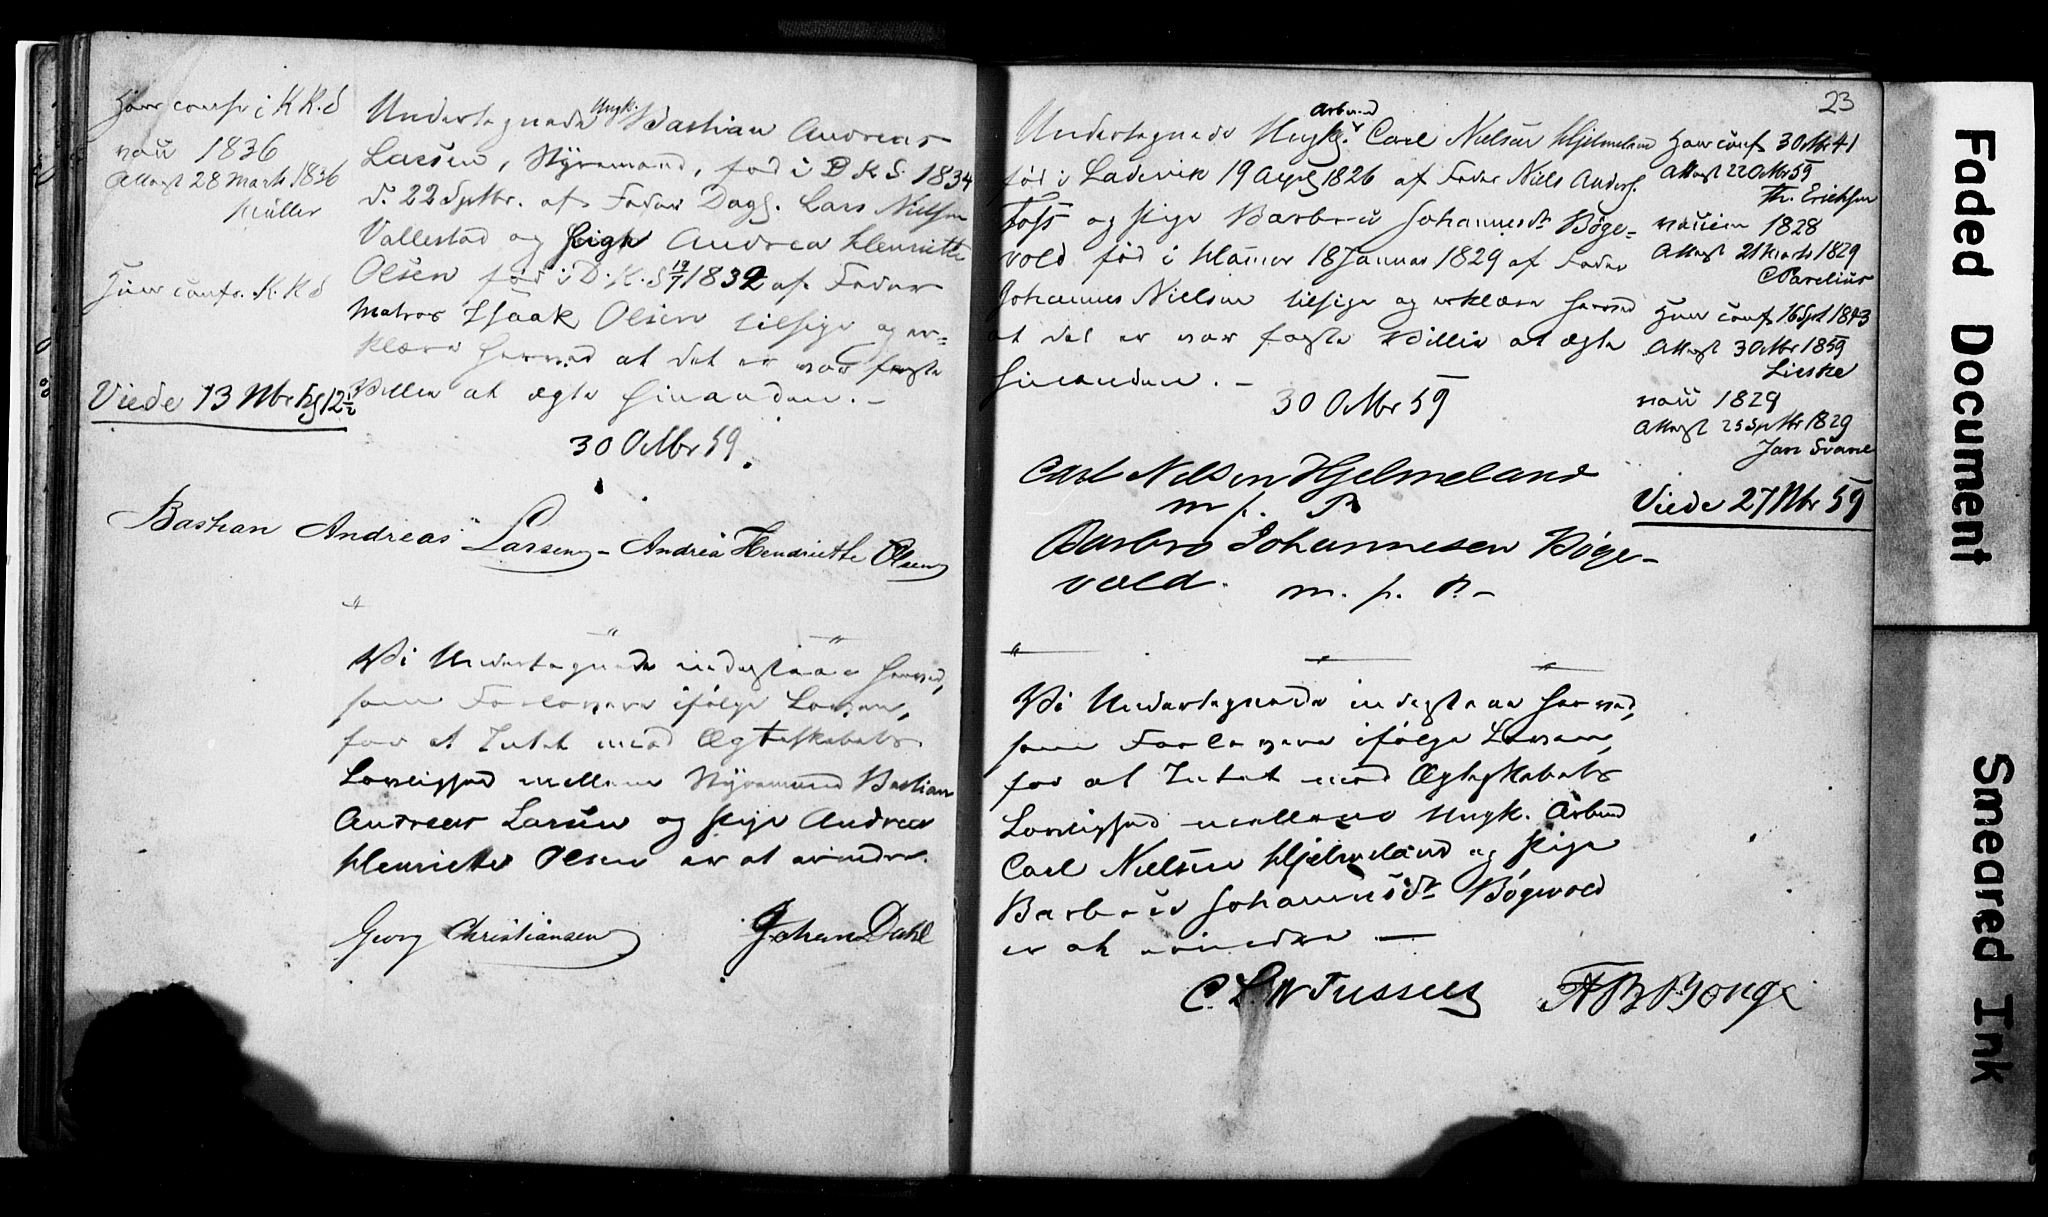 Han conf. i K K. d
vacc 1836
Attest 28 Marts 1836
Müller
Hun conf. K. K d
Viede 13 Nbr kl 12½
Undertegnede Ungk. Bastian Andreas
Larsen, Styrmand, fød i D K S. 1834
d. 22 Septbr. af Fader Dagl. Lars Nielsen
Vallestad og Pige Andrea Henriette
Olsen fød i D. K. S 19/7 1832 af Fader
Matros Isaak Olsen tilsige og er=
klære herved at det er vor faste
Villie at ægte hinanden. –
30 Octbr 59.
Bastian Andreas Larsen – Andrea Henriette Olsen
Vi Undertegnede indestaae herved,
som Forlovere ifølge Loven,
for at Intet mod Ægteskabets
Lovlighed mellem Styrmand Bastian
Andreas Larsen og Pige Andrea
Henriette Olsen er at erindre.
Georg Christiansen Johan Dahl
23
Undertegnede Ungk. Arbmd Carl Nielsen Hjelmeland
fød i Ladevik 19 April 1826 af Fader Niels Anders.
Foss og Pige Barbra Johannesdr Bøge=
vold fød i Hammer 18 Januar 1829 af Fader
Johannes Nielsen tilsige og erklære herved
at det er vor faste Villie at ægte
hinanden. –
30 Octbr 59
Han conf 3 Octbr 41
Attest 22 Octbr 59
Th. Erichsen
vaccin 1828
Attest 21 Marts 1829
C Parelius
Hun conf 16 Spt 1843
Attest 3 Octbr 1859
Lieske
vacc 1829
Attest 25 Septbr 1829
Jan Svane
Viede 27 Nbr 59
Carl Nilsen Hjelmeland
m. p. P
Barbro Johannesen Bøge–
vold. m. p. P. –
Vi Undertegnede indestaae herved,
som Forlovere ifølge Loven,
for at Intet mod Ægteskabets
Lovlighed mellem Ungk. Arbmd
Carl Nielsen Hjelmeland og Pige
Barbra Johannesdr Bøgevold
er at erindre –
Faded Document
Smeared Ink